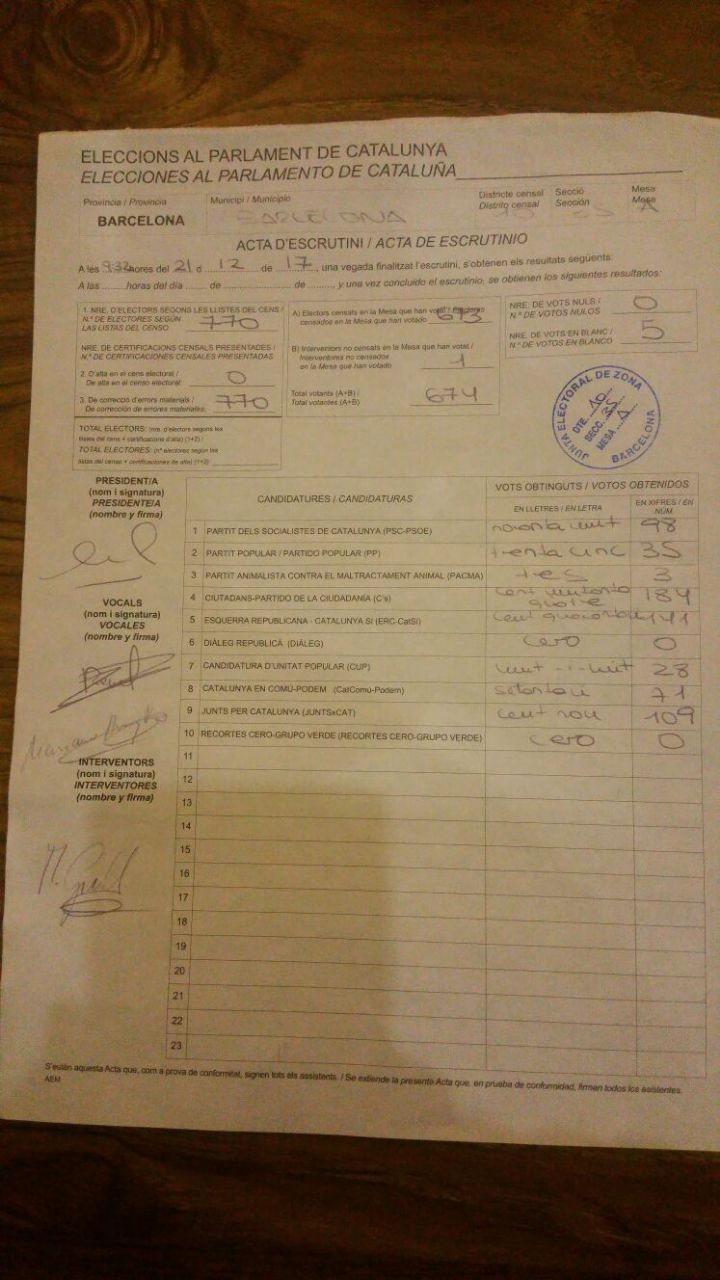 ELECCIONS AL PARLAMENT DE CATALUNYA
ELECCIONES AL PARLAMENTO DE CATALUÑA
Província / Provincia
BARCELONA
Municipi / Municipio
BARCELONA
Districte censal
Distrito censal
10
Secció
Sección
35
Mesa
Mesa
A
ACTA D'ESCRUTINI / ACTA DE ESCRUTINIO
A les 9:32 hores del 21 d 12 de 17, una vegada finalitzat l'escrutini, s'obtenen els resultats següents:
A las ........ horas del día ........ de ........ de ........, y una vez concluido el escrutinio, se obtienen los siguientes resultados:
1. NRE. D'ELECTORS SEGONS LES LLISTES DEL CENS /
N.º DE ELECTORES SEGÚN
LAS LISTAS DEL CENSO 770
NRE. DE CERTIFICACIONS CENSALS PRESENTADES /
N.º DE CERTIFICACIONES CENSALES PRESENTADAS
2. D'alta en el cens electoral /
De alta en el censo electoral: 0
3. De correcció d'errors materials /
De corrección de errores materiales: 770
TOTAL ELECTORS: (nre. d'electors segons les
llistes del cens + certificacions d'alta) (1+2) /
TOTAL ELECTORES: (nº electores según las
listas del censo + certificaciones de alta) (1+2)
A) Electors censats en la Mesa que han votat / Electores
censados en la Mesa que han votado 673
B) Interventors no censats en la Mesa que han votat /
Interventores no censados
en la Mesa que han votado 1
Total votants (A+B) /
Total votantes (A+B) 674
NRE. DE VOTS NULS /
N.º DE VOTOS NULOS 0
NRE. DE VOTS EN BLANC /
N.º DE VOTOS EN BLANCO 5
JUNTA ELECTORAL DE ZONA
DTE. 10
SECC. 35
MESA A
BARCELONA
PRESIDENT/A
(nom i signatura)
PRESIDENTE/A
(nombre y firma)
VOCALS
(nom i signatura)
VOCALES
(nombre y firma)
INTERVENTORS
(nom i signatura)
INTERVENTORES
(nombre y firma)
CANDIDATURES / CANDIDATURAS
VOTS OBTINGUTS / VOTOS OBTENIDOS
EN LLETRES / EN LETRA
EN XIFRES / EN NÚM.
1 PARTIT DELS SOCIALISTES DE CATALUNYA (PSC-PSOE) noranta vuit 98
2 PARTIT POPULAR / PARTIDO POPULAR (PP) trenta cinc 35
3 PARTIT ANIMALISTA CONTRA EL MALTRACTAMENT ANIMAL (PACMA) tres 3
4 CIUTADANS-PARTIDO DE LA CIUDADANÍA (C's) cent vuitanta quatre 184
5 ESQUERRA REPUBLICANA - CATALUNYA SÍ (ERC-CatSí) cent quaranta 141
6 DIÀLEG REPUBLICÀ (DIÀLEG) cero 0
7 CANDIDATURA D'UNITAT POPULAR (CUP) vint-i-vuit 28
8 CATALUNYA EN COMÚ-PODEM (CatComú-Podem) setanta u 71
9 JUNTS PER CATALUNYA (JUNTSxCAT) cent nou 109
10 RECORTES CERO-GRUPO VERDE (RECORTES CERO-GRUPO VERDE) cero 0
11
12
13
14
15
16
17
18
19
20
21
22
23
S'estén aquesta Acta que, com a prova de conformitat, signen tots els assistents. / Se extiende la presente Acta que, en prueba de conformidad, firman todos los asistentes.
AEM